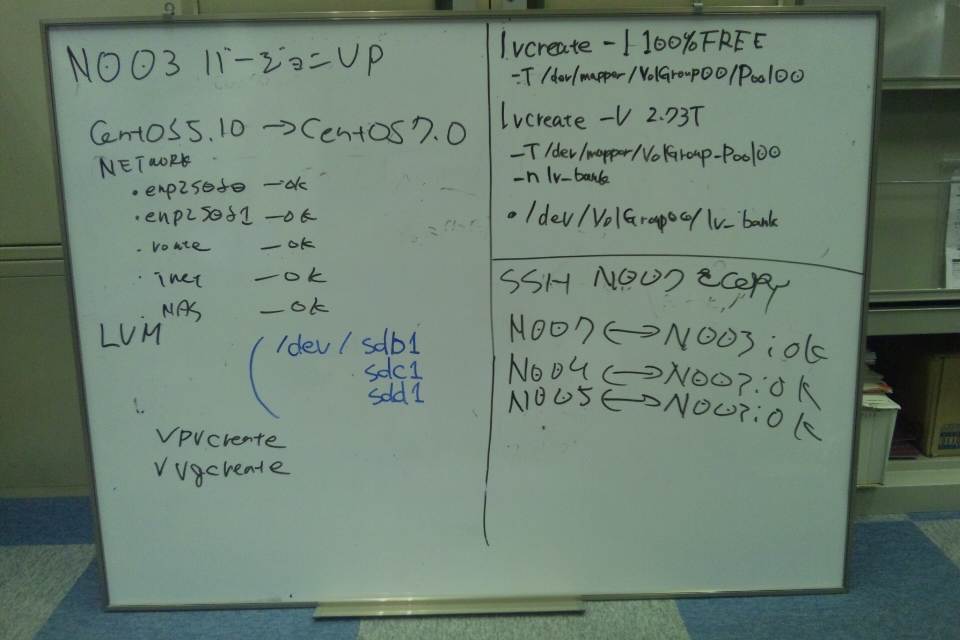 N003 バージョンUP
CentOS5.10 →CentOS7.0
NETWORK
・enp2s0f0 —ok
・enp2s0f1 —ok
・route —ok
・inet —ok
・NAS —ok
LVM
/dev/ sdb1
sdc1
sdd1
✓pvcreate
✓vgcreate
lvcreate -l 100%FREE
-T /dev/mapper/VolGroup00/Pool00
lvcreate -V 2.73T
-T /dev/mapper/VolGroup-Pool00
-n lv_bank
・/dev/VolGroup00/lv_bank
SSH N007 をcopy
N007 ↔ N003 : ok
N004 ↔ N007 : ok
N005 ↔ N007 : ok